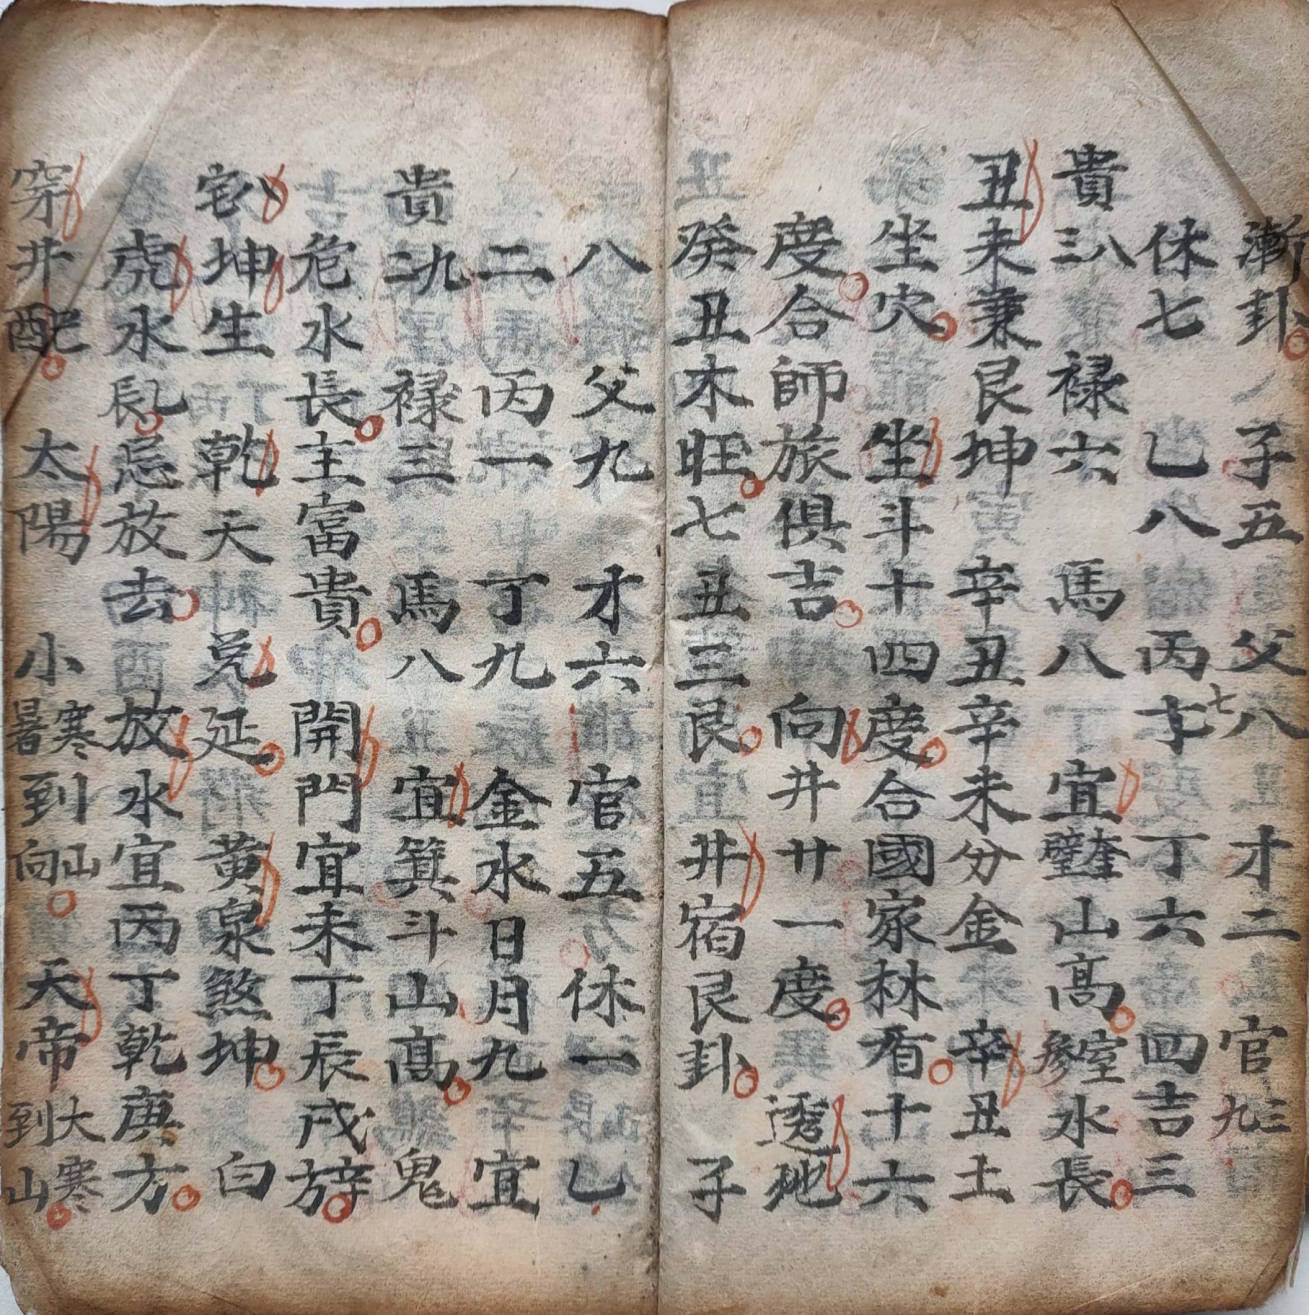 漸卦子五父八才二官三九
休七乜八丙七丁六四吉三
貴三八禄六馬八宜奎壁山高參室水長
丑未兼艮坤辛丑辛未分金辛丑土
坐穴坐斗十四度合國家林看十六
度合師旅俱吉向井廿一度透地
癸丑木旺七丑三艮井宿艮卦子
八父九才六官五休一乜
二丙一丁九金水日月九宜
貴二九禄三馬八宜箕斗山高鬼
危水長主富貴開門宜未丁辰戌辛方
八宅坤生乾天兌延黃泉煞坤白
虎水辰乙忌放去放水宜丙丁乾庚方
穿井配巳太陽小寒小暑到山向天帝大寒到山